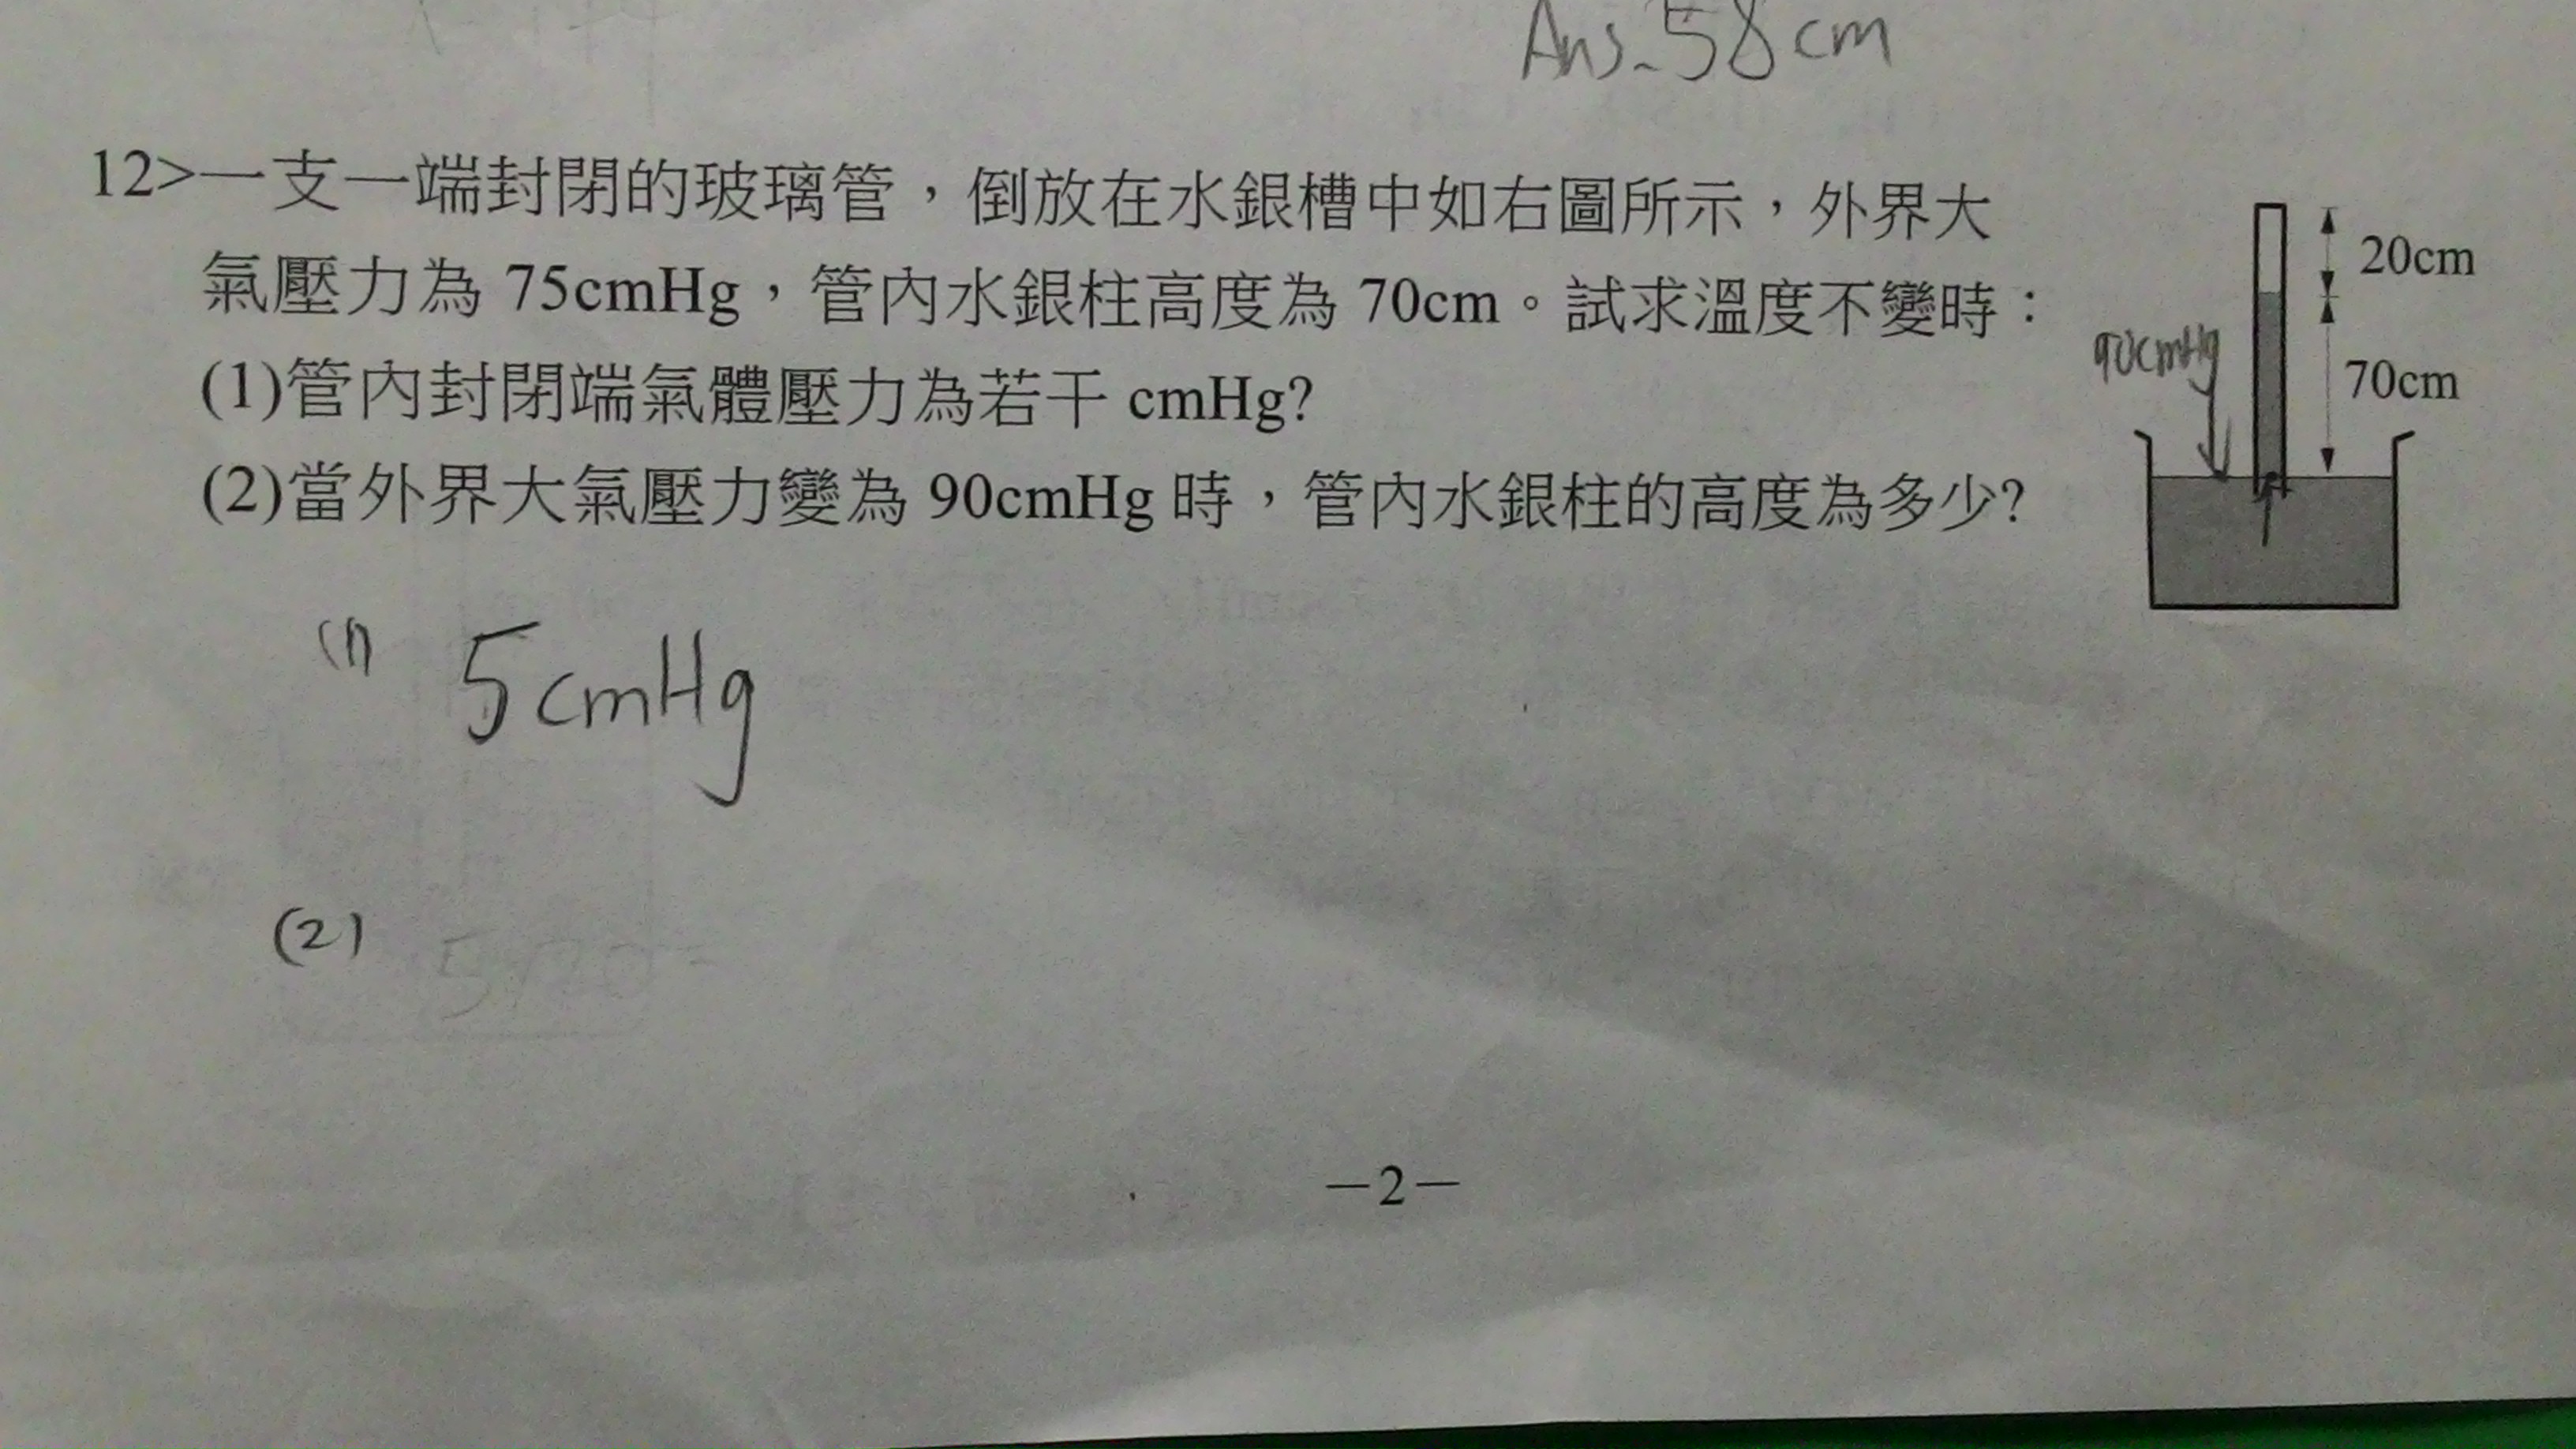 Ans. 58cm
12>一支一端封閉的玻璃管，倒放在水銀槽中如右圖所示，外界大
氣壓力為 75cmHg，管內水銀柱高度為 70cm。試求溫度不變時：
(1)管內封閉端氣體壓力為若干 cmHg?
(2)當外界大氣壓力變為 90cmHg 時，管內水銀柱的高度為多少?
20cm
90cmHg
70cm
(1) 5cmHg
(2)
－2－